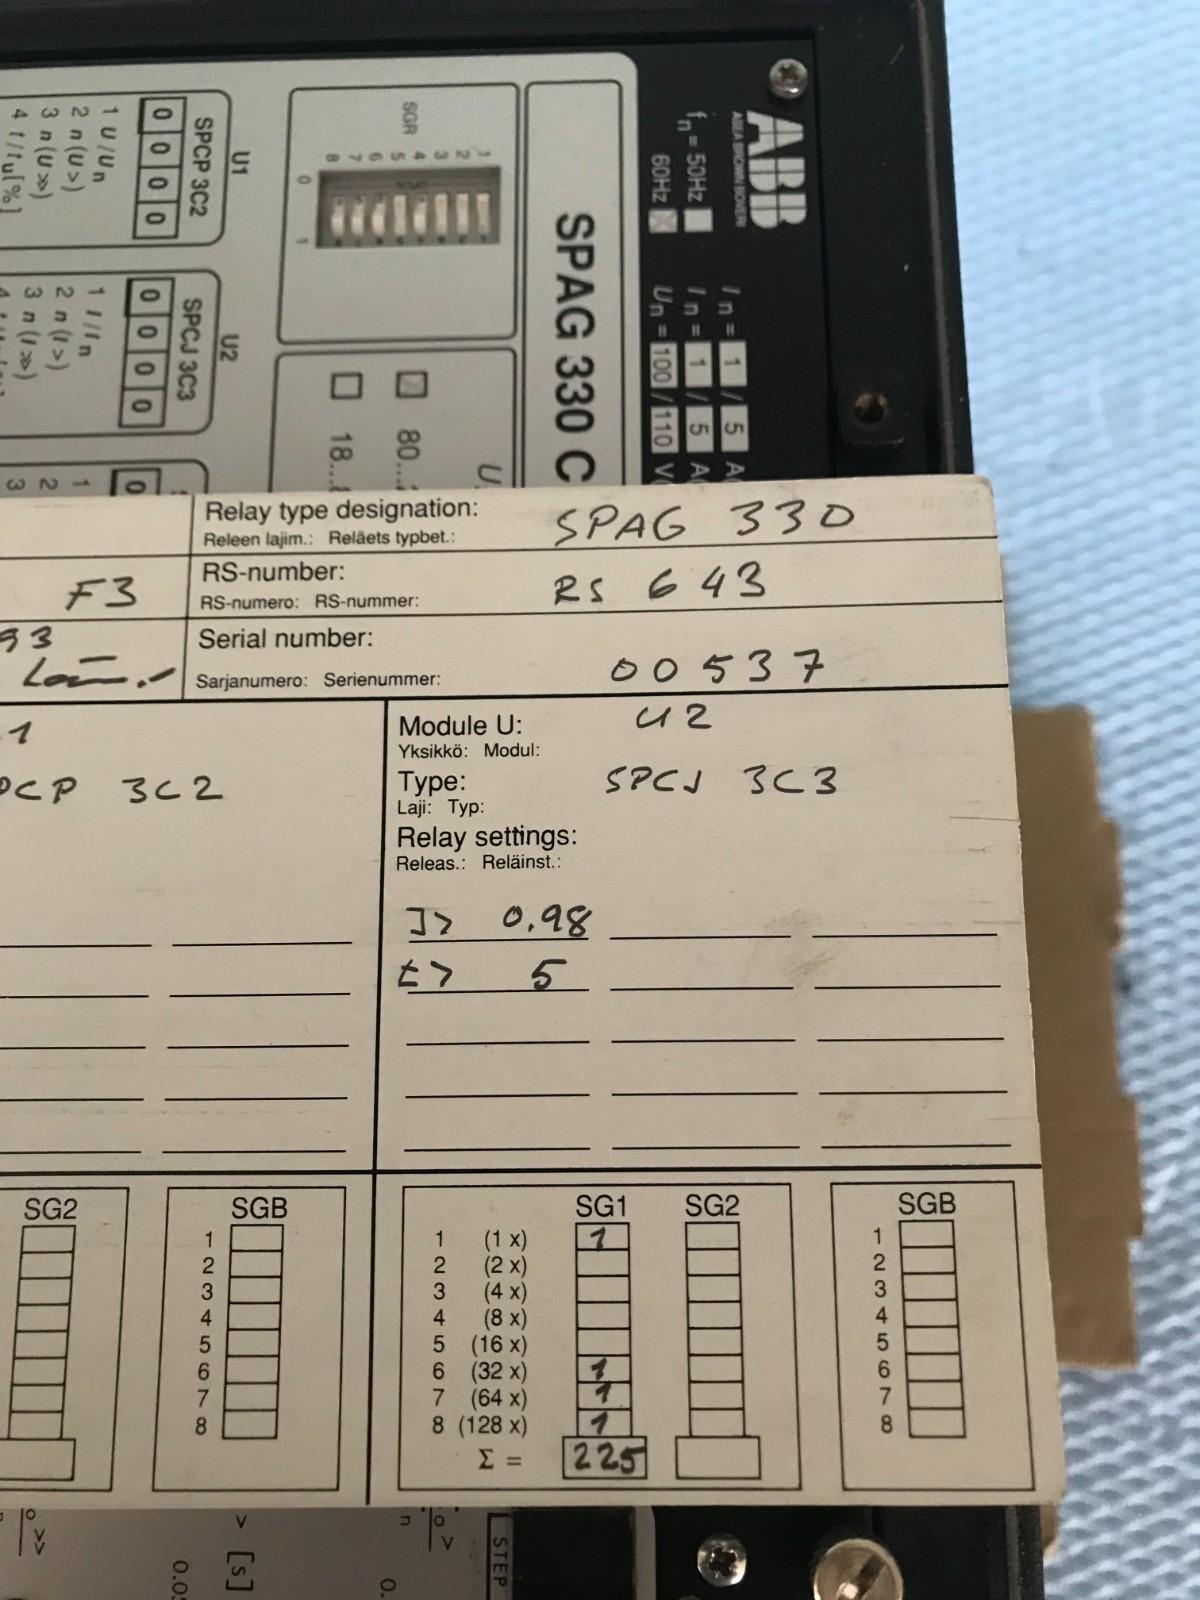 ABB
ASEA BROWN BOVERI
fn = 50Hz
60Hz
In = 1 / 5 A
In = 1 / 5 A
Un = 100 / 110 V
SPAG 330 C
SGR
8 7 6 5 4 3 2 1
0
1
U
80...
18...
U1
SPCP 3C2
0 0 0 0
1 U/Un
2 n(U>)
3 n(U>>)
4 t/tu[%]
U2
SPCJ 3C3
0 0 0 0
1 I/In
2 n(I>)
3 n(I>>)
4
0
1
2
3
Relay type designation: SPAG 330
Releen lajim.: Reläets typbet.:
F3 RS-number: RS 643
RS-numero: RS-nummer:
93 Serial number: 00537
Sarjanumero: Serienummer:
1 Module U: U2
Yksikkö: Modul:
PCP 3C2 Type: SPCJ 3C3
Laji: Typ:
Relay settings:
Releas.: Reläinst.:
I> 0.98
t> 5
SG2 SGB SG1 SG2 SGB
1 1 (1 x) 1 1
2 2 (2 x) 2
3 3 (4 x) 3
4 4 (8 x) 4
5 5 (16 x) 5
6 6 (32 x) 1 6
7 7 (64 x) 1 7
8 8 (128 x) 1 8
Σ = 225
>>
> [s]
0.05
n
0.
STEP